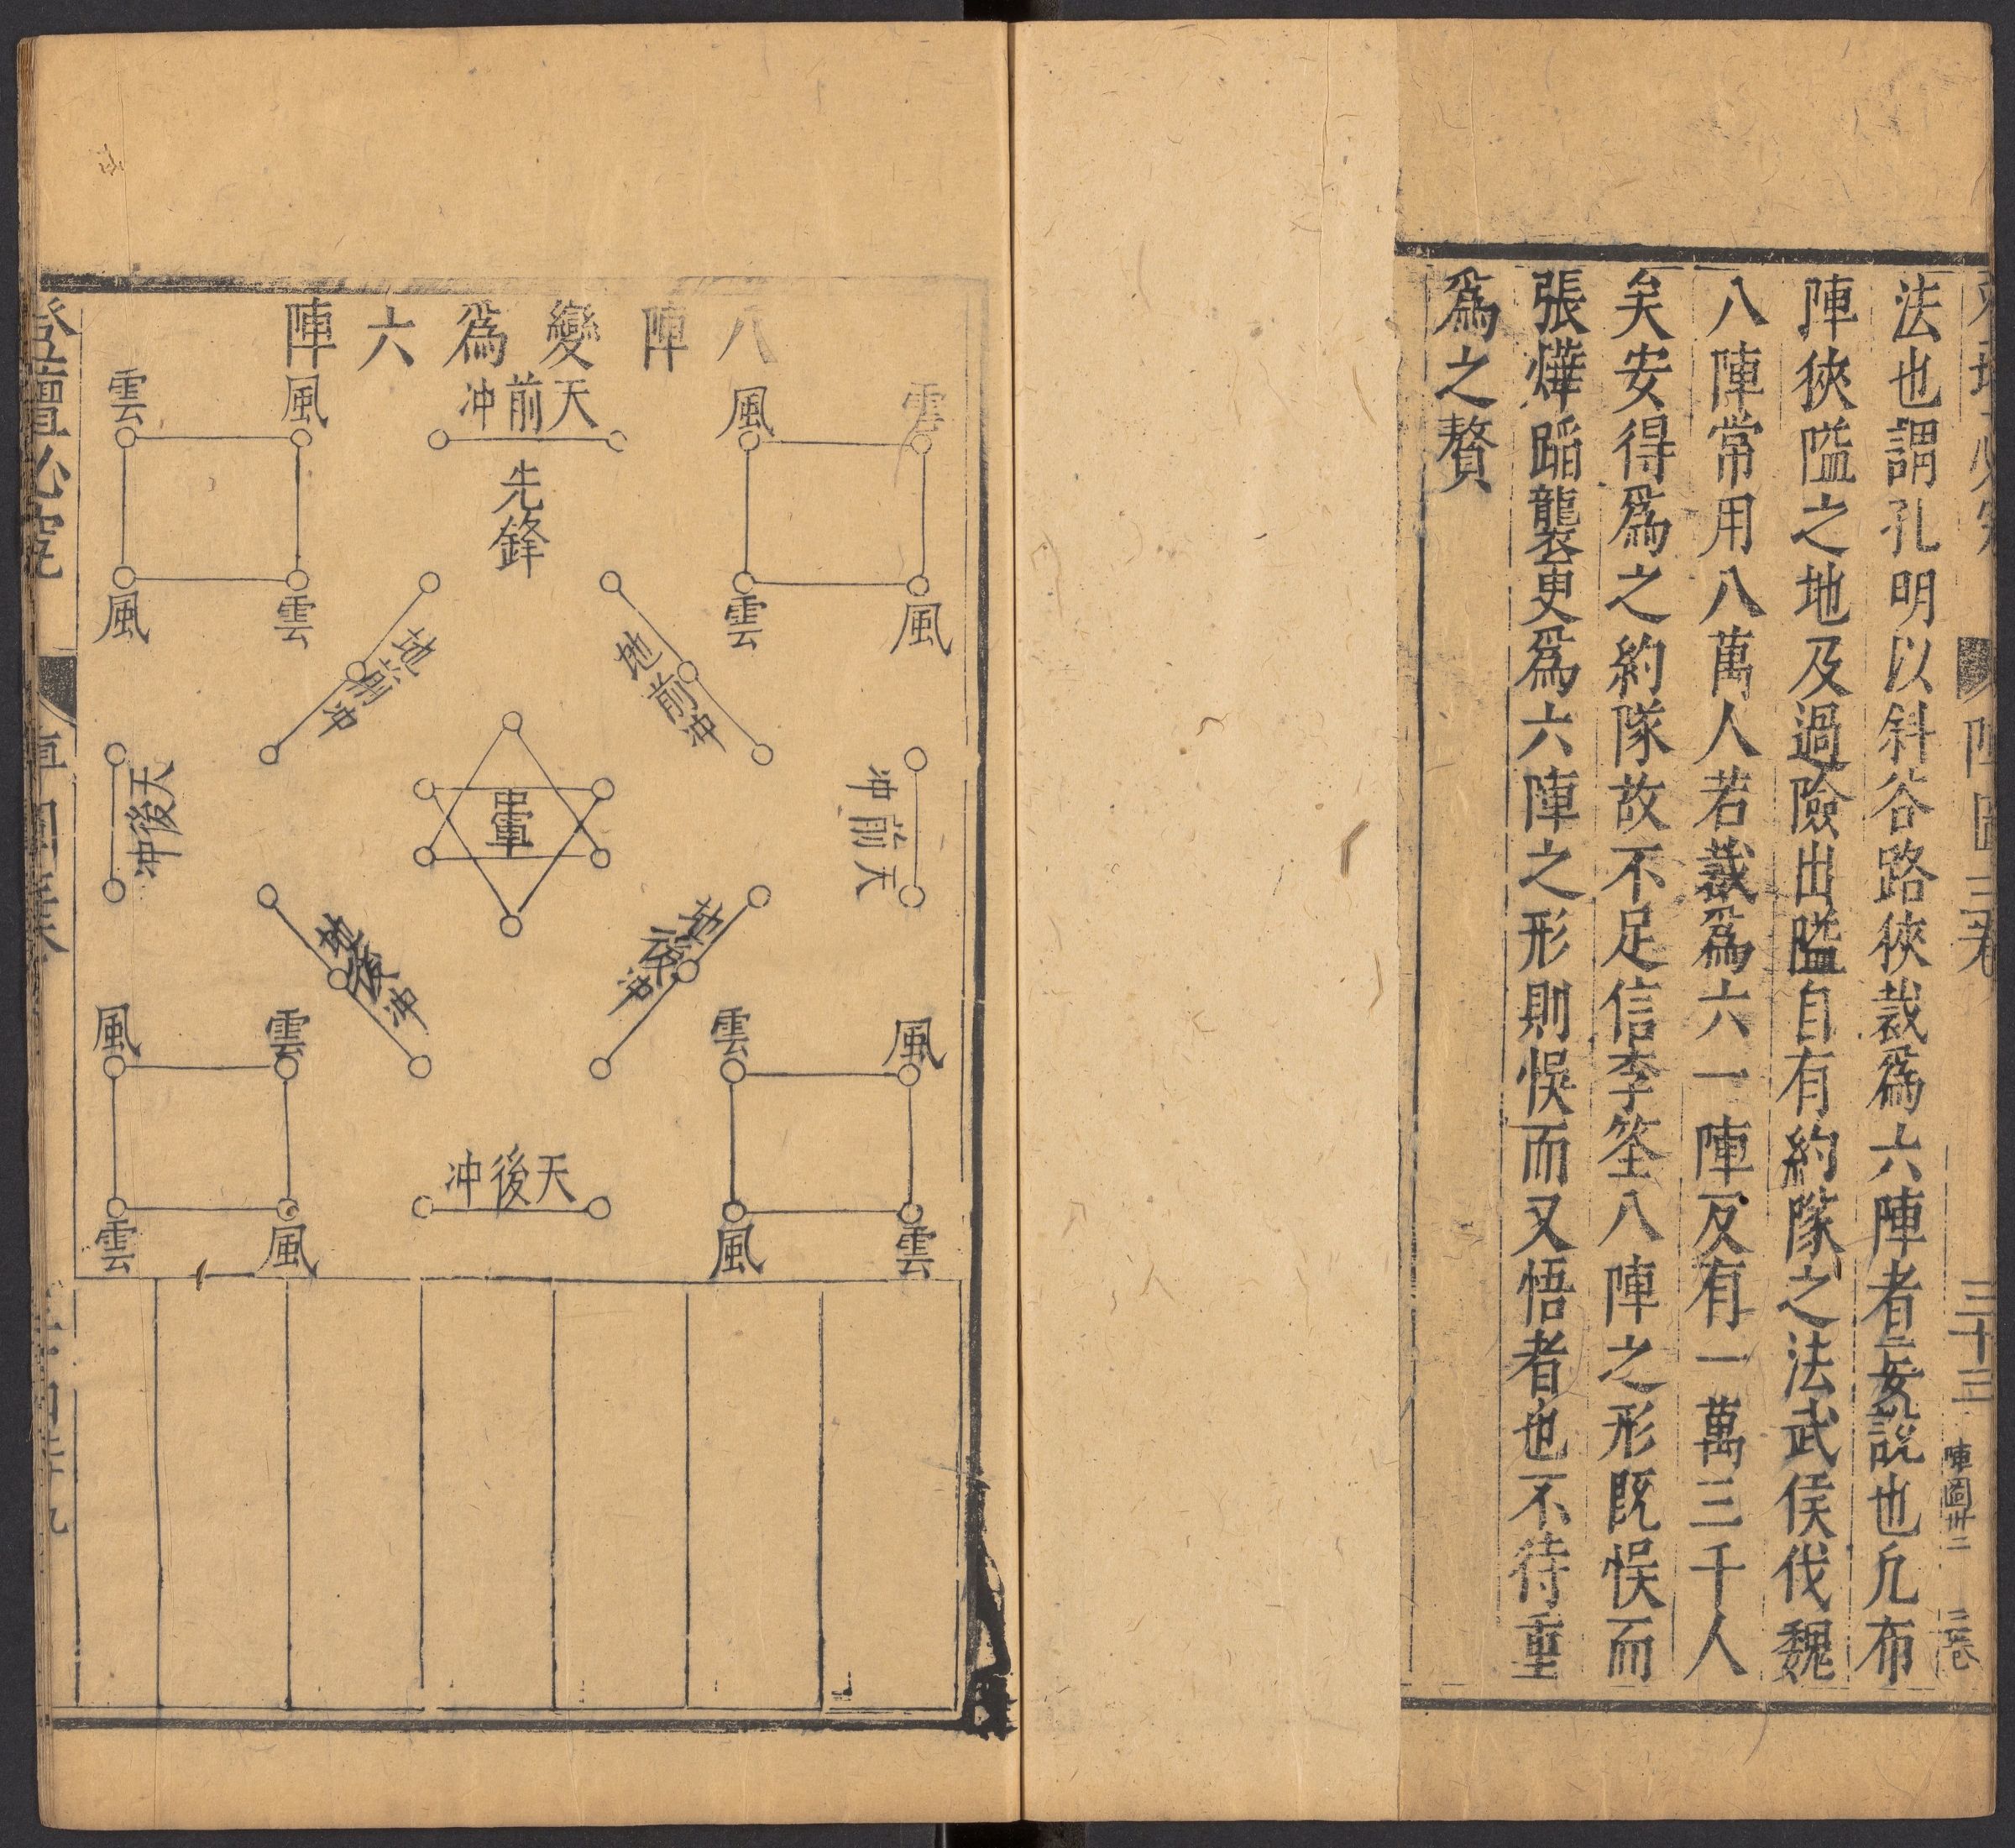 陣圖三卷
三十三
陣圖卅二
三卷
法也謂孔明以斜谷路狹裁爲六陣者妄說也凡布
陣狹隘之地及過險出隘自有約隊之法武侯伐魏
八陣常用八萬人若裁爲六一陣反有一萬三千人
矣安得爲之約隊故不足信李筌八陣之形既悮而
張燁蹈襲更爲六陣之形則悮而又悟者也不待重
爲之贅
八陣變爲六陣
雲
風
天前冲
風
雲
先鋒
風
雲
雲
風
地前冲
地前冲
天前冲
中軍
天後冲
地後冲
地後冲
風
雲
雲
風
天後冲
雲
風
風
雲
登壇必究